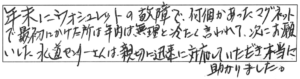 年末にウォシュレットの故障で、何個かあったマグネット
で最初にかけた所は年内は無理と冷たく言われて、次にお願
いした水道センターさんは親切に迅速に対応していただき本当に
助かりました。